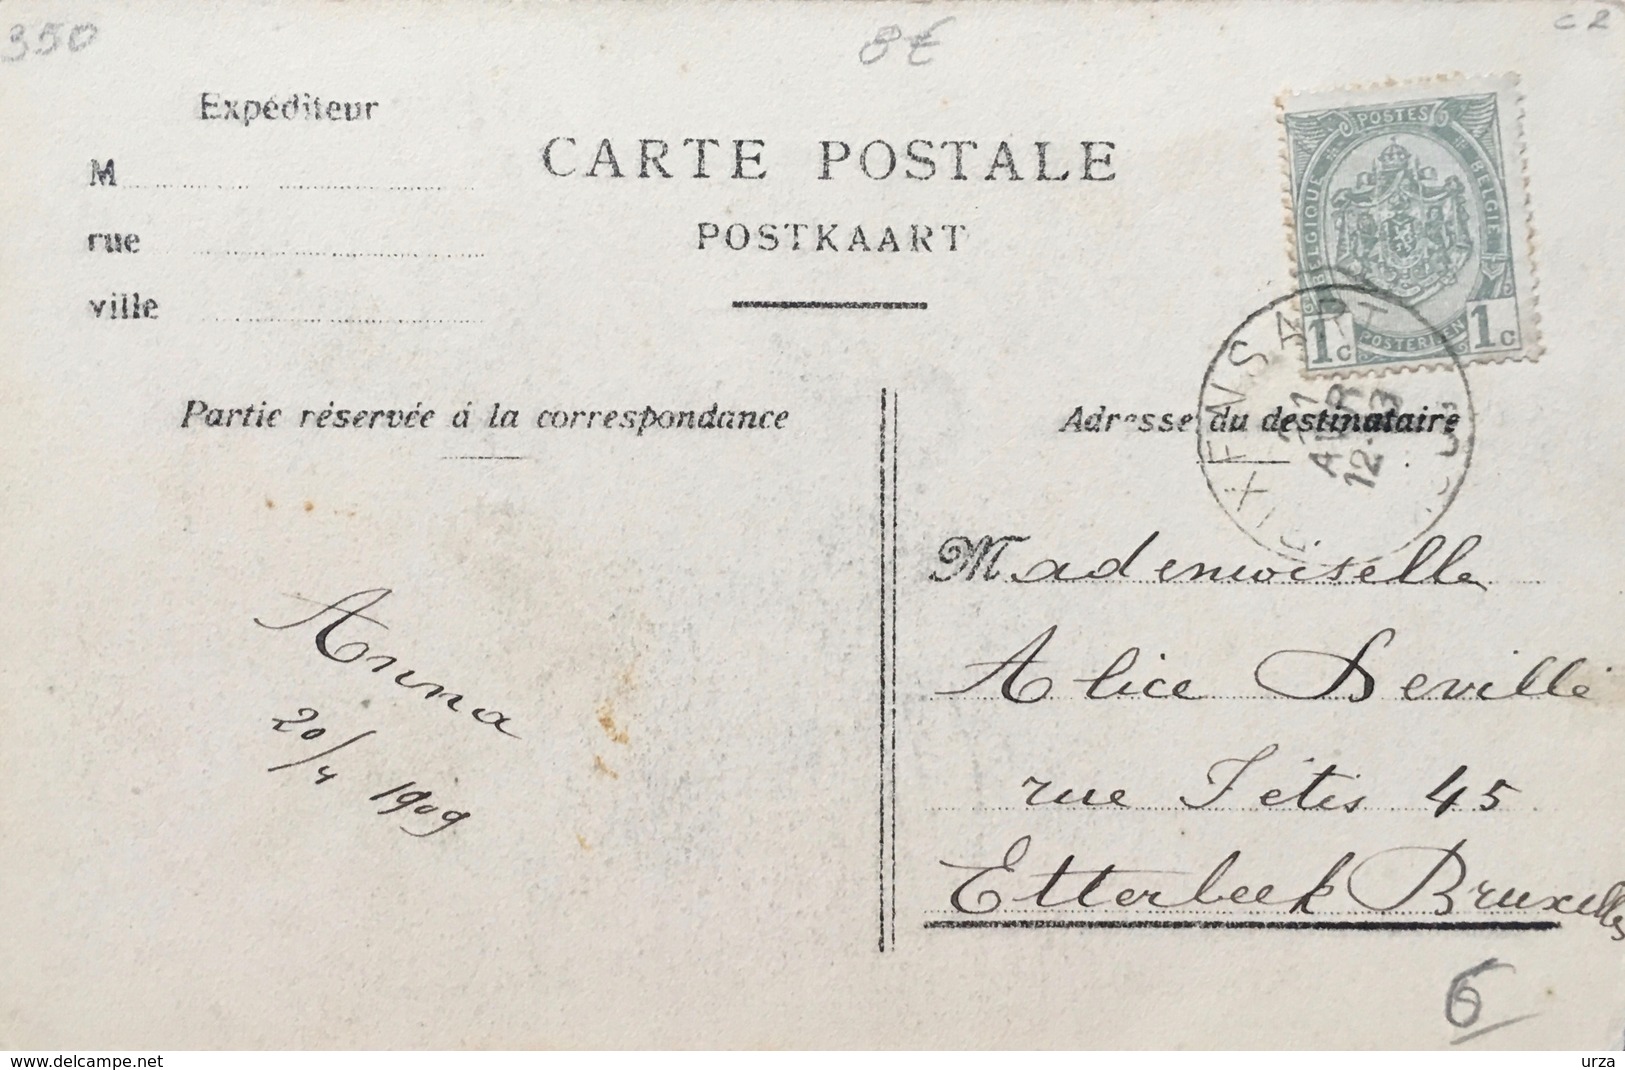 350
8€
c2
Expéditeur
M
rue
ville
CARTE POSTALE
POSTKAART
POSTES
BELGIQUE
BELGIE
POSTERIJEN
1c
1c
21
AVR
12-
Partie réservée á la correspondance
Adresse du destinataire
Anna
20/4 1909
Mademoiselle
Alice Deville
rue Fétis 45
Etterbeek Bruxelles
6
delcampe.net
urza